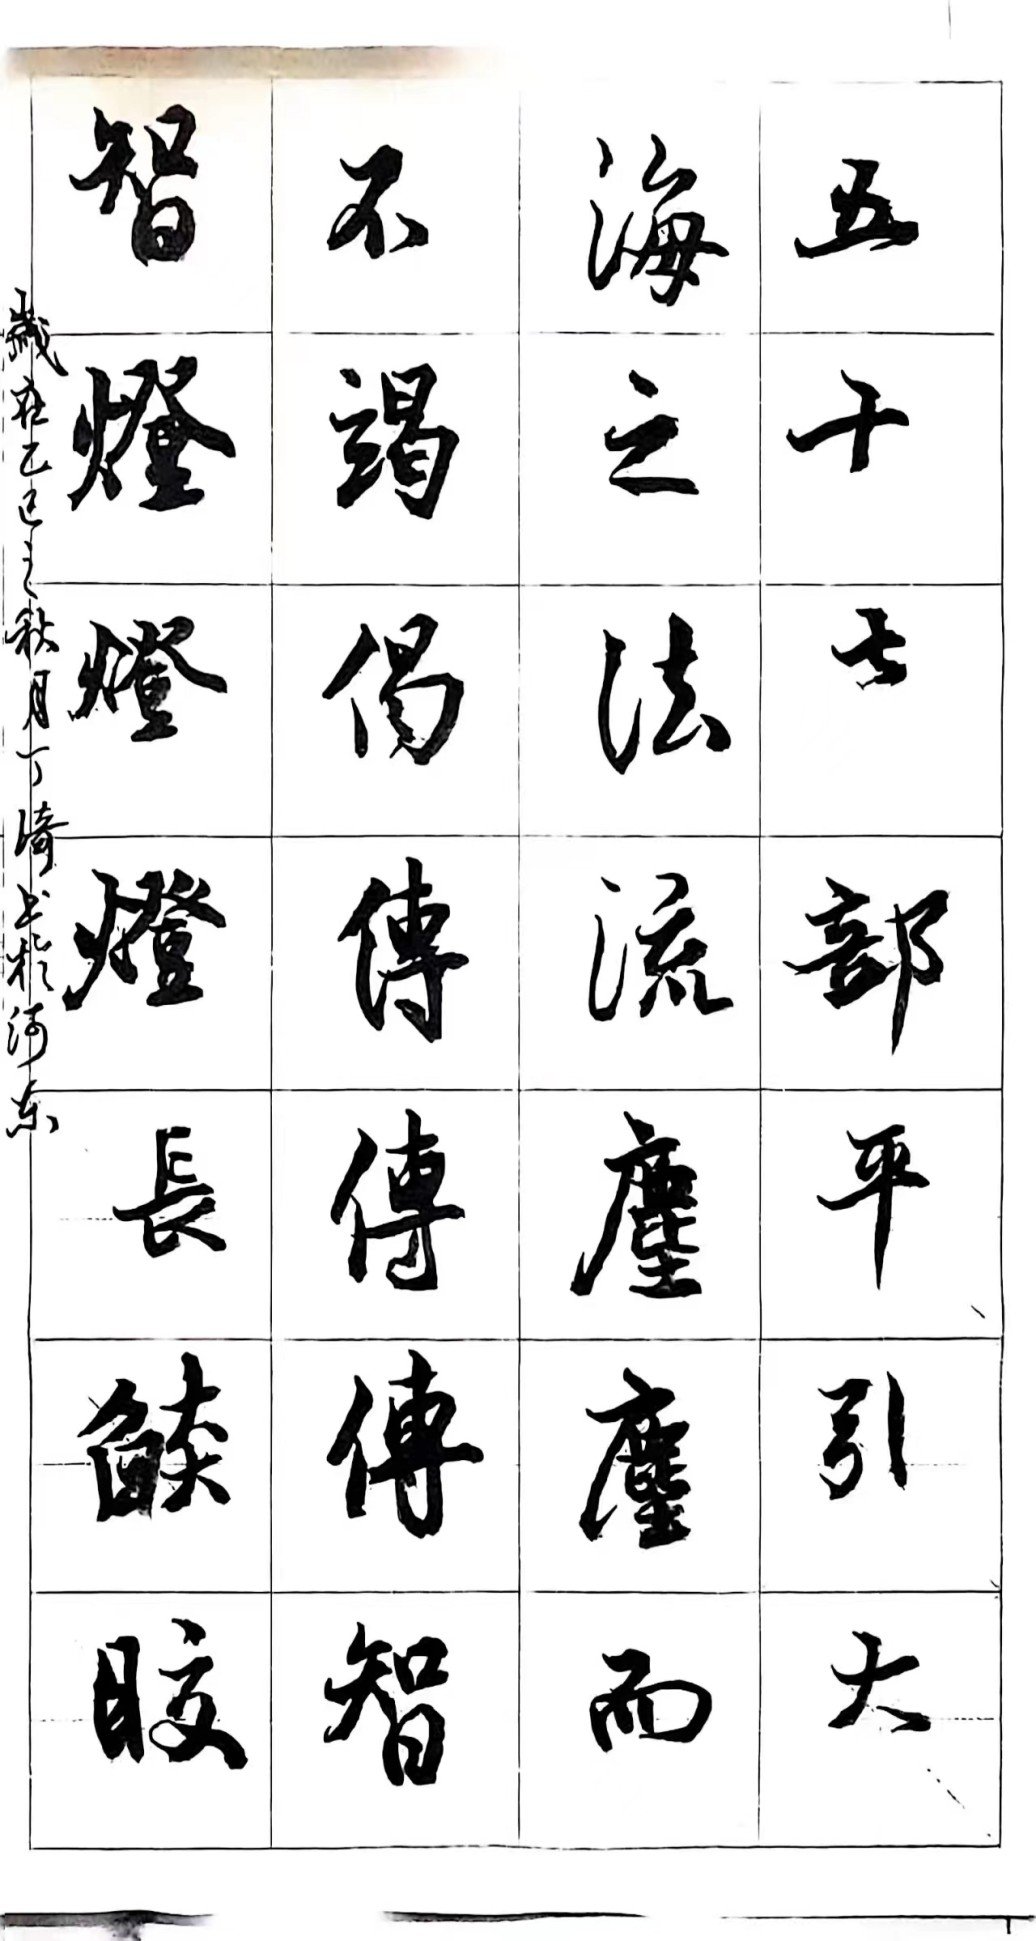 五十七部平引大
海之法流塵塵而
不竭偈傳傳傳智
智燈燈燈長燄皎
歲在乙巳之秋月丁琦书於河东